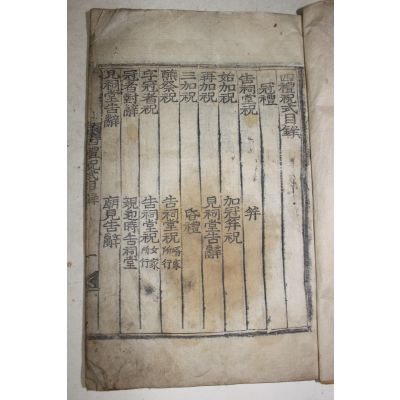 四禮祝式目錄
冠禮
告祠堂祝
始加祝
再加祝
三加祝
醮祭祝
字冠者祝
冠者對辭
見祠堂告辭
笄
加冠笄祝
見祠堂告辭
昏禮
告祠堂祝 壻家所行
告祠堂祝 女家所行
親迎時告祠堂
廟見告辭
四禮祝式目錄 一